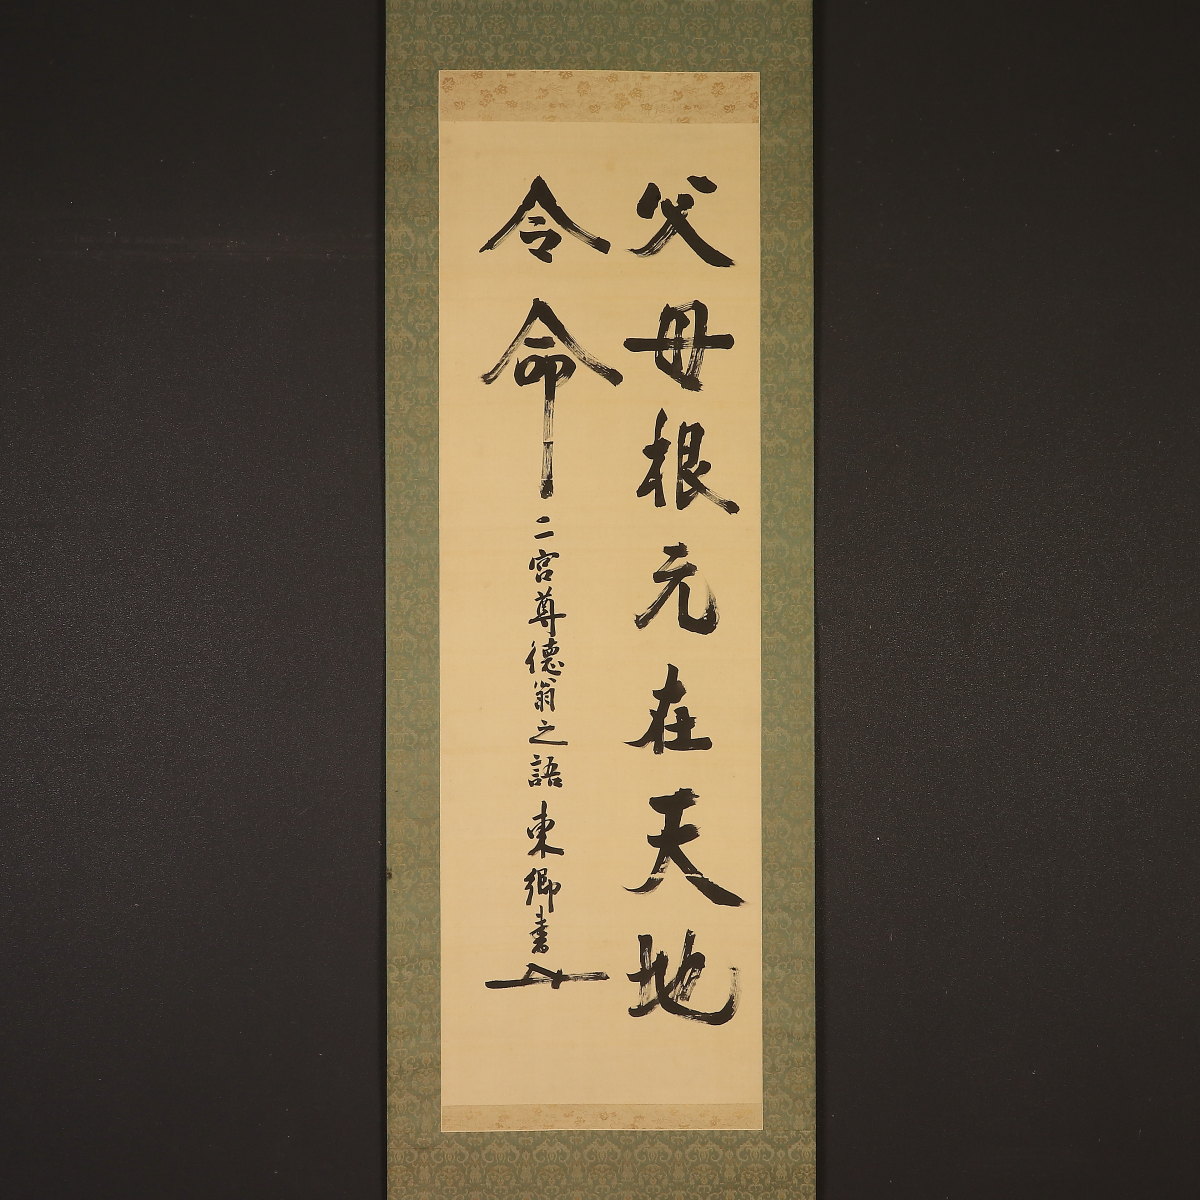 父母根元在天地
令命二宮尊徳翁之語 東郷書